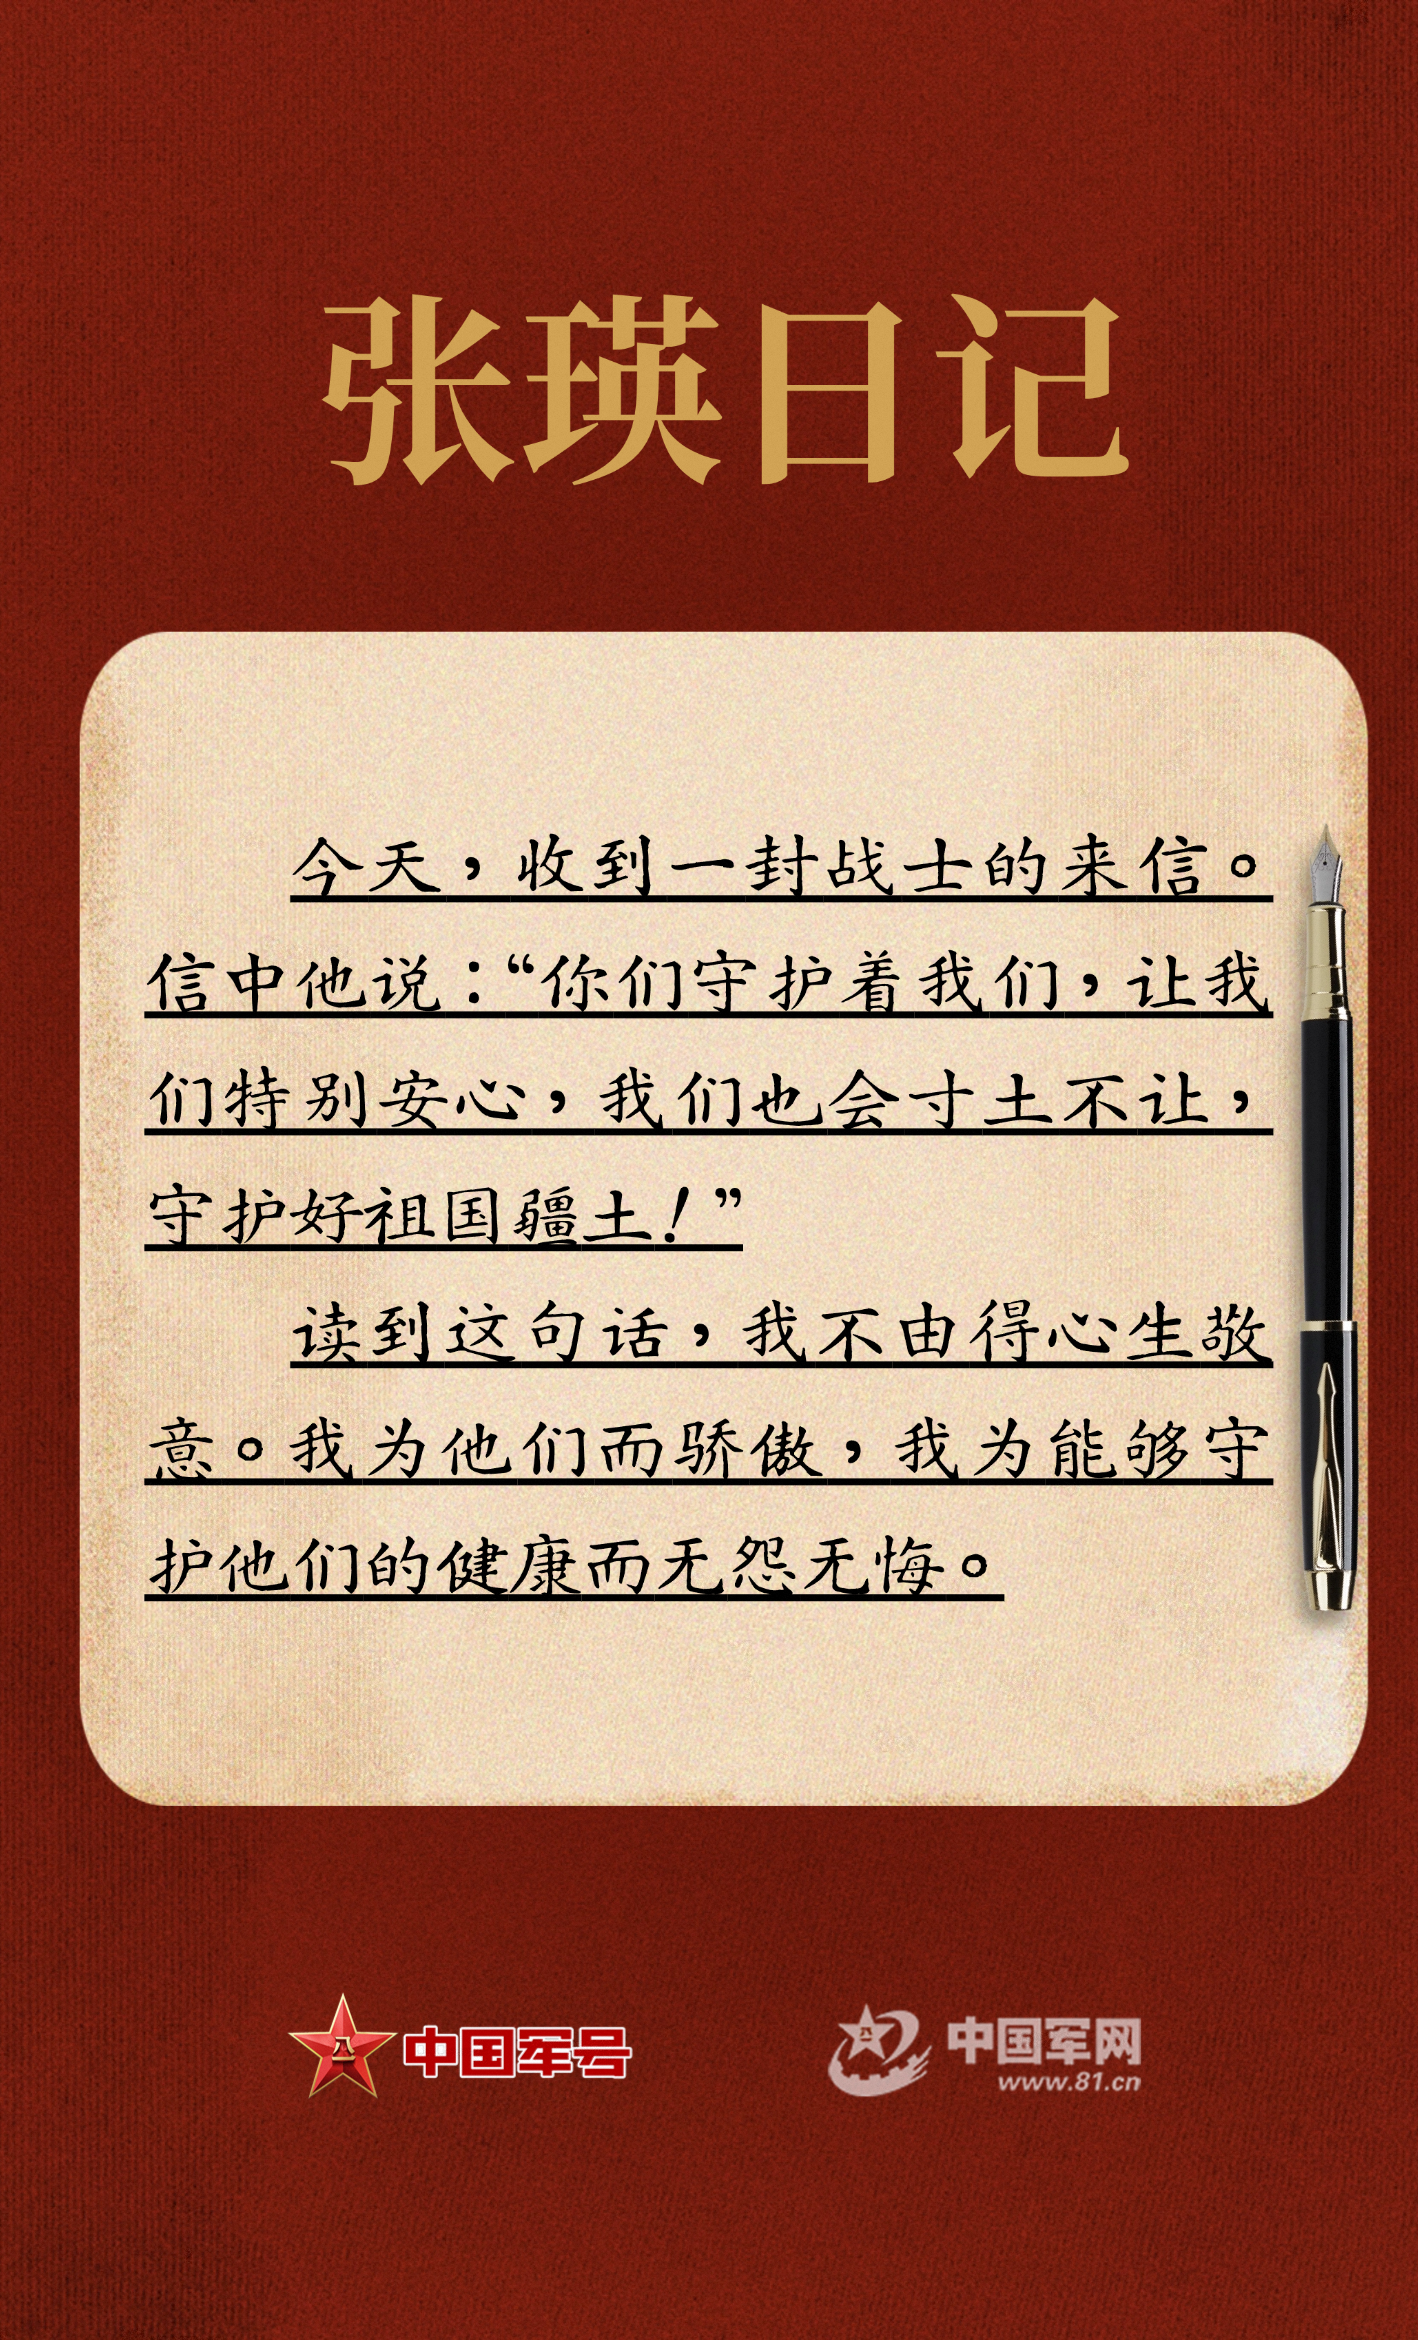 张瑛日记
今天，收到一封战士的来信。
信中他说：“你们守护着我们，让我
们特别安心，我们也会寸土不让，
守护好祖国疆土！”
读到这句话，我不由得心生敬
意。我为他们而骄傲，我为能够守
护他们的健康而无怨无悔。
八一 中国军号
八一 中国军网
www.81.cn